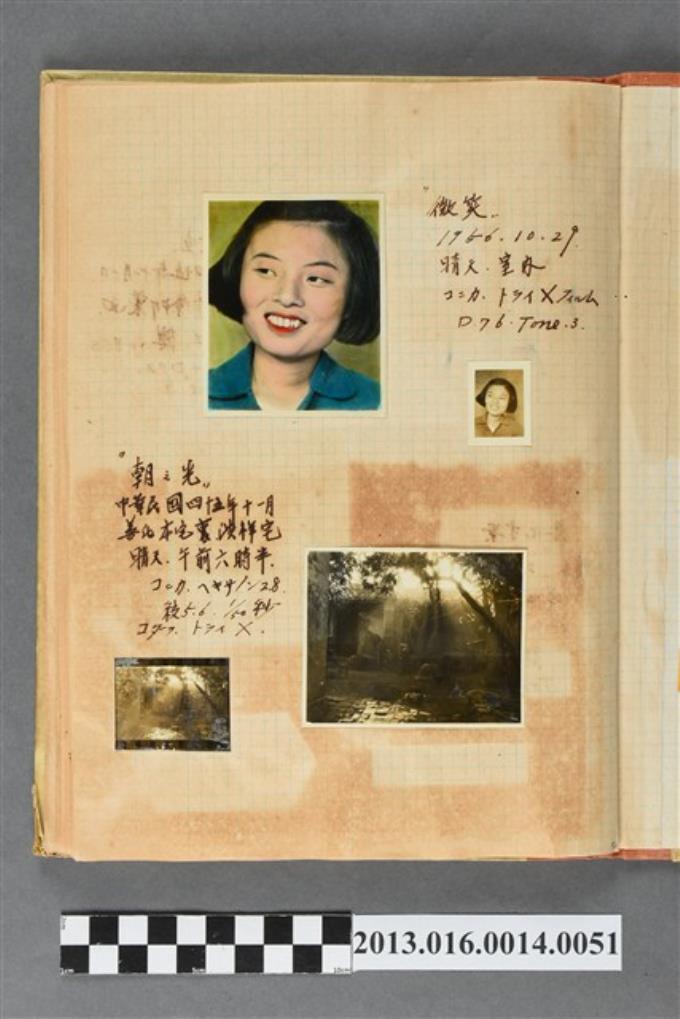 "微笑"
1956.10.29.
晴天.室内
コニカ.トライXフィルム
D.76.Tone.3.
"朝之光"
中華民國四十五年十一月
善化本宅裏洪祥宅
晴天.午前六時半.
コニカ.ヘキサノン28.
絞5.6. 1/50秒
コダック.トライX.
1cm 5cm 10cm
2013.016.0014.0051